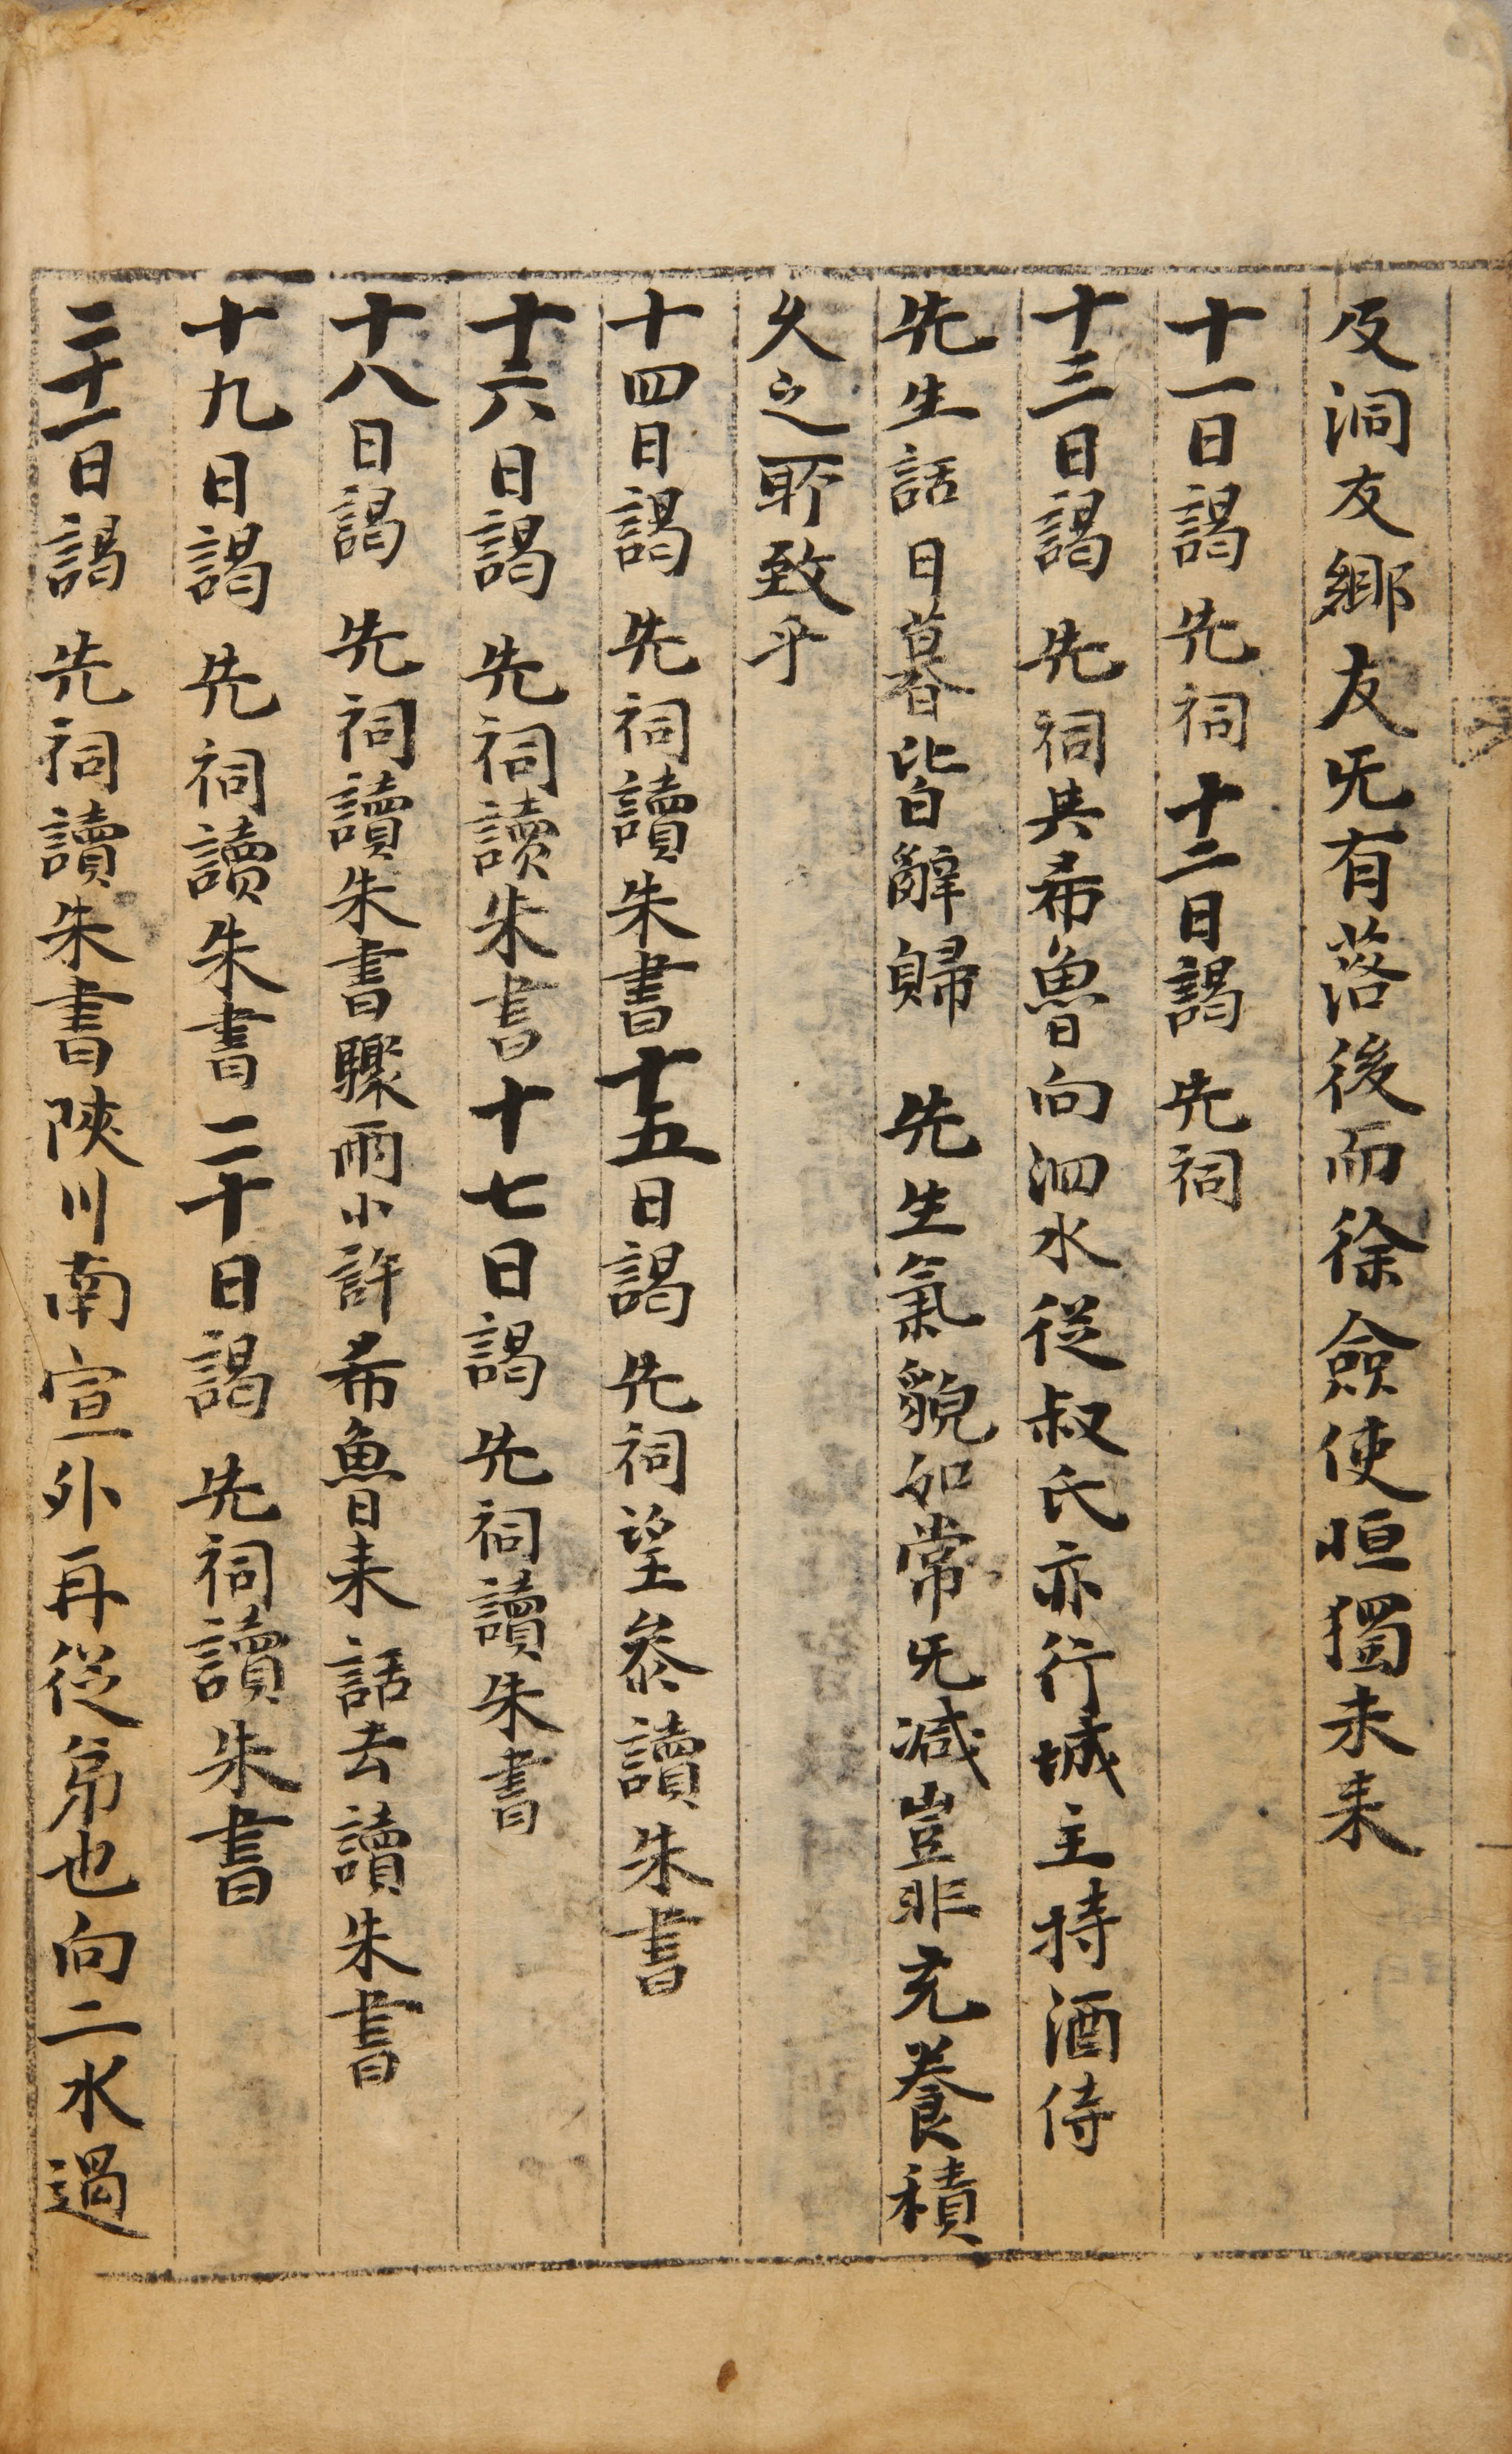 及洞友鄉友旡有落後而徐僉使恒獨未来
十一日謁 先祠十二日謁 先祠
十三日謁 先祠共希魯向泗水從叔氏亦行城主持酒侍
先生話日暮皆辭歸 先生氣貌如常旡减豈非充養積
久之所致乎
十四日謁 先祠讀朱書十五日謁 先祠望參讀朱書
十六日謁 先祠讀朱書十七日謁 先祠讀朱書
十八日謁 先祠讀朱書驟雨小許希魯来話去讀朱書
十九日謁 先祠讀朱書二十日謁 先祠讀朱書
二十一日謁 先祠讀朱書陜川南宣外再從弟也向二水過